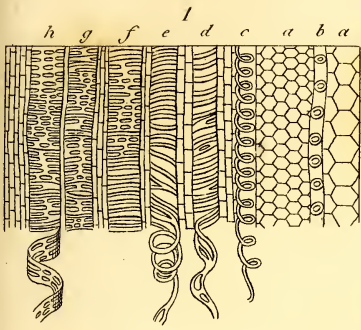 1
h g f e d c a b a